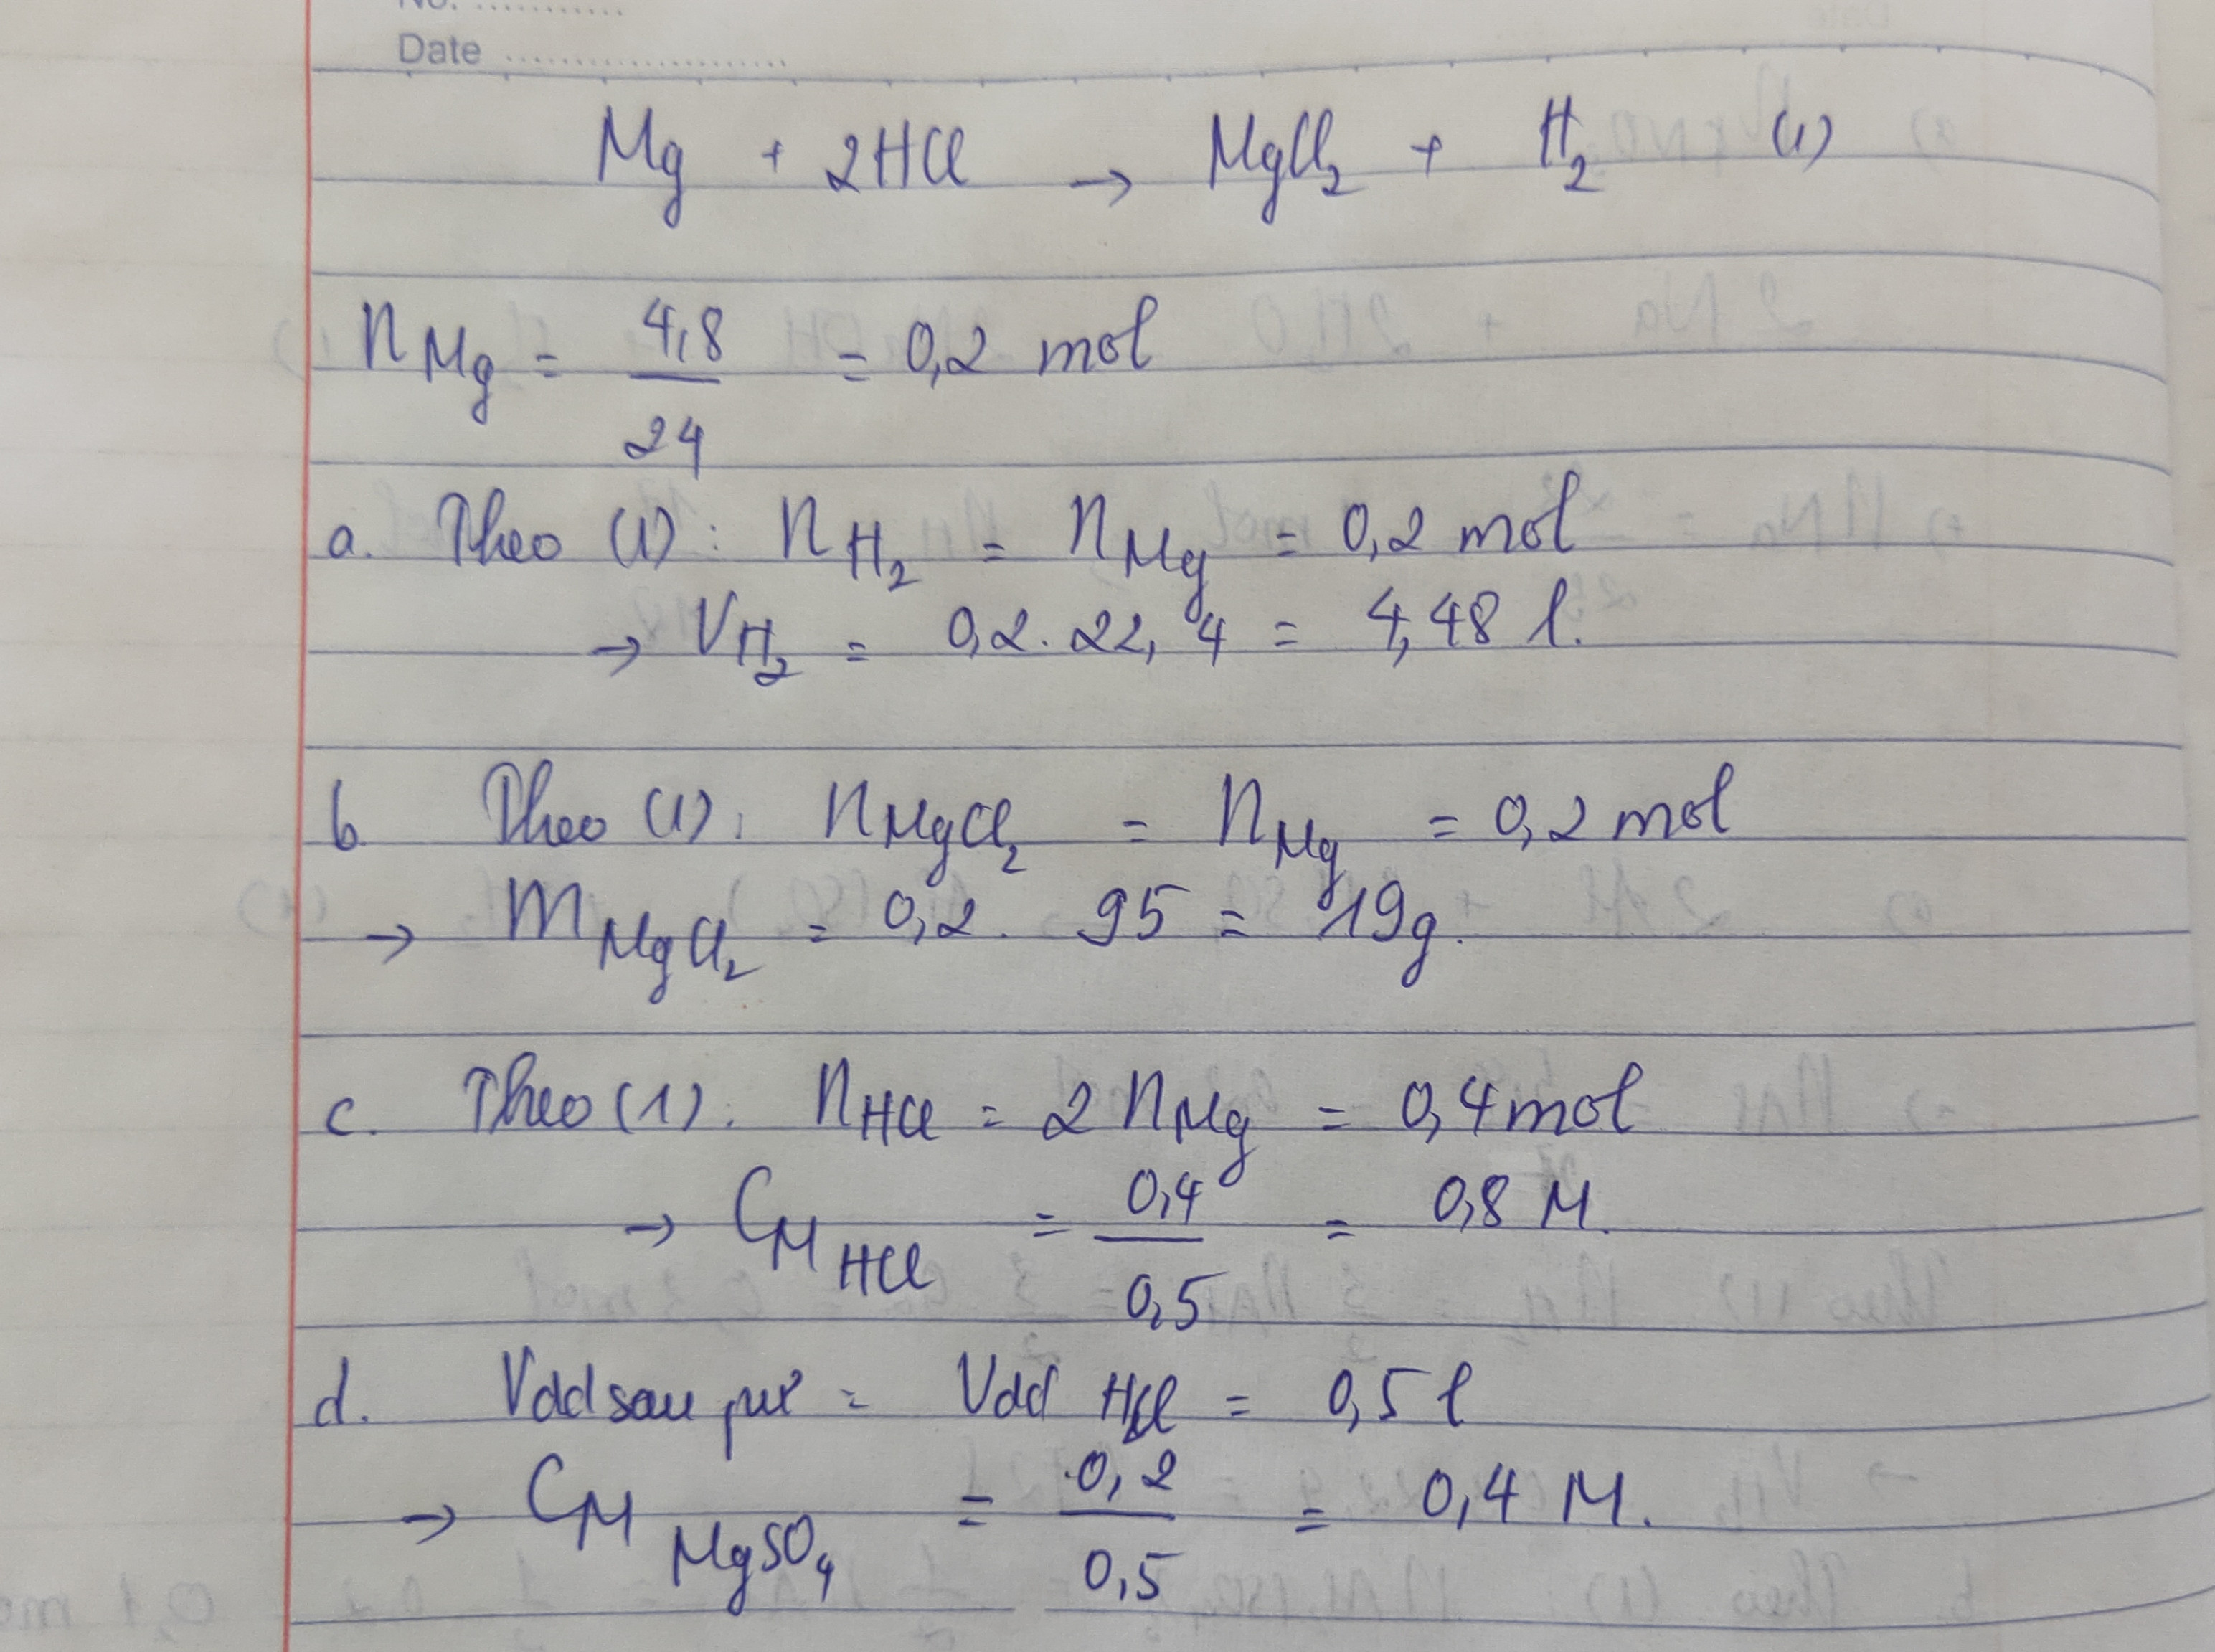 No. ............
Date .....................
Mg + 2HCl → MgCl₂ + H₂ (1)
n Mg = 4,8 / 24 = 0,2 mol
a. Theo (1) : n H₂ = n Mg = 0,2 mol
→ V H₂ = 0,2 . 22,4 = 4,48 l.
b. Theo (1) : n MgCl₂ = n Mg = 0,2 mol
→ m MgCl₂ = 0,2 . 95 = 19g.
c. Theo (1) : n HCl = 2 n Mg = 0,4 mol
→ C M HCl = 0,4 / 0,5 = 0,8 M.
d. Vdd sau pư = Vdd HCl = 0,5 l
→ C M MgSO₄ = 0,2 / 0,5 = 0,4 M.